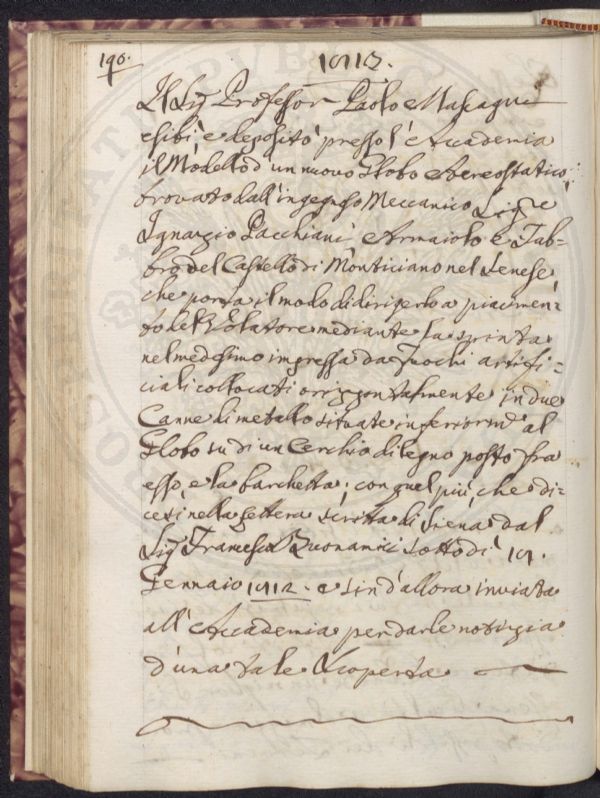 190.
1812.
Il Sig.r Professor Paolo Mascagni
esibì, e depositò presso l'Accademia
il Modello d'un nuovo Globo Aereostatico,
trovato dall'ingegnoso Meccanico Sig.re
Ignazio Pacchiani, Armaiolo e Fab=
bro del Castello di Monticiano nel Senese,
che porta il modo di dirigerlo a piacimen=
to del Volatore mediante la spinta
nel medesimo impressa da fuochi artifi=
ciali collocati orizzontalmente in due
Canne di metallo situate inferiorm.e al
Globo su di un Cerchio di legno posto fra
esso, e la barchetta; con quel più, che di=
cesi nella Lettera scritta di Siena dal
Sig.r Francesco Buonamici sotto dì 18.
Gennaio 1812. e sin d'allora inviata
all'Accademia per darle notizia
d'una tale scoperta